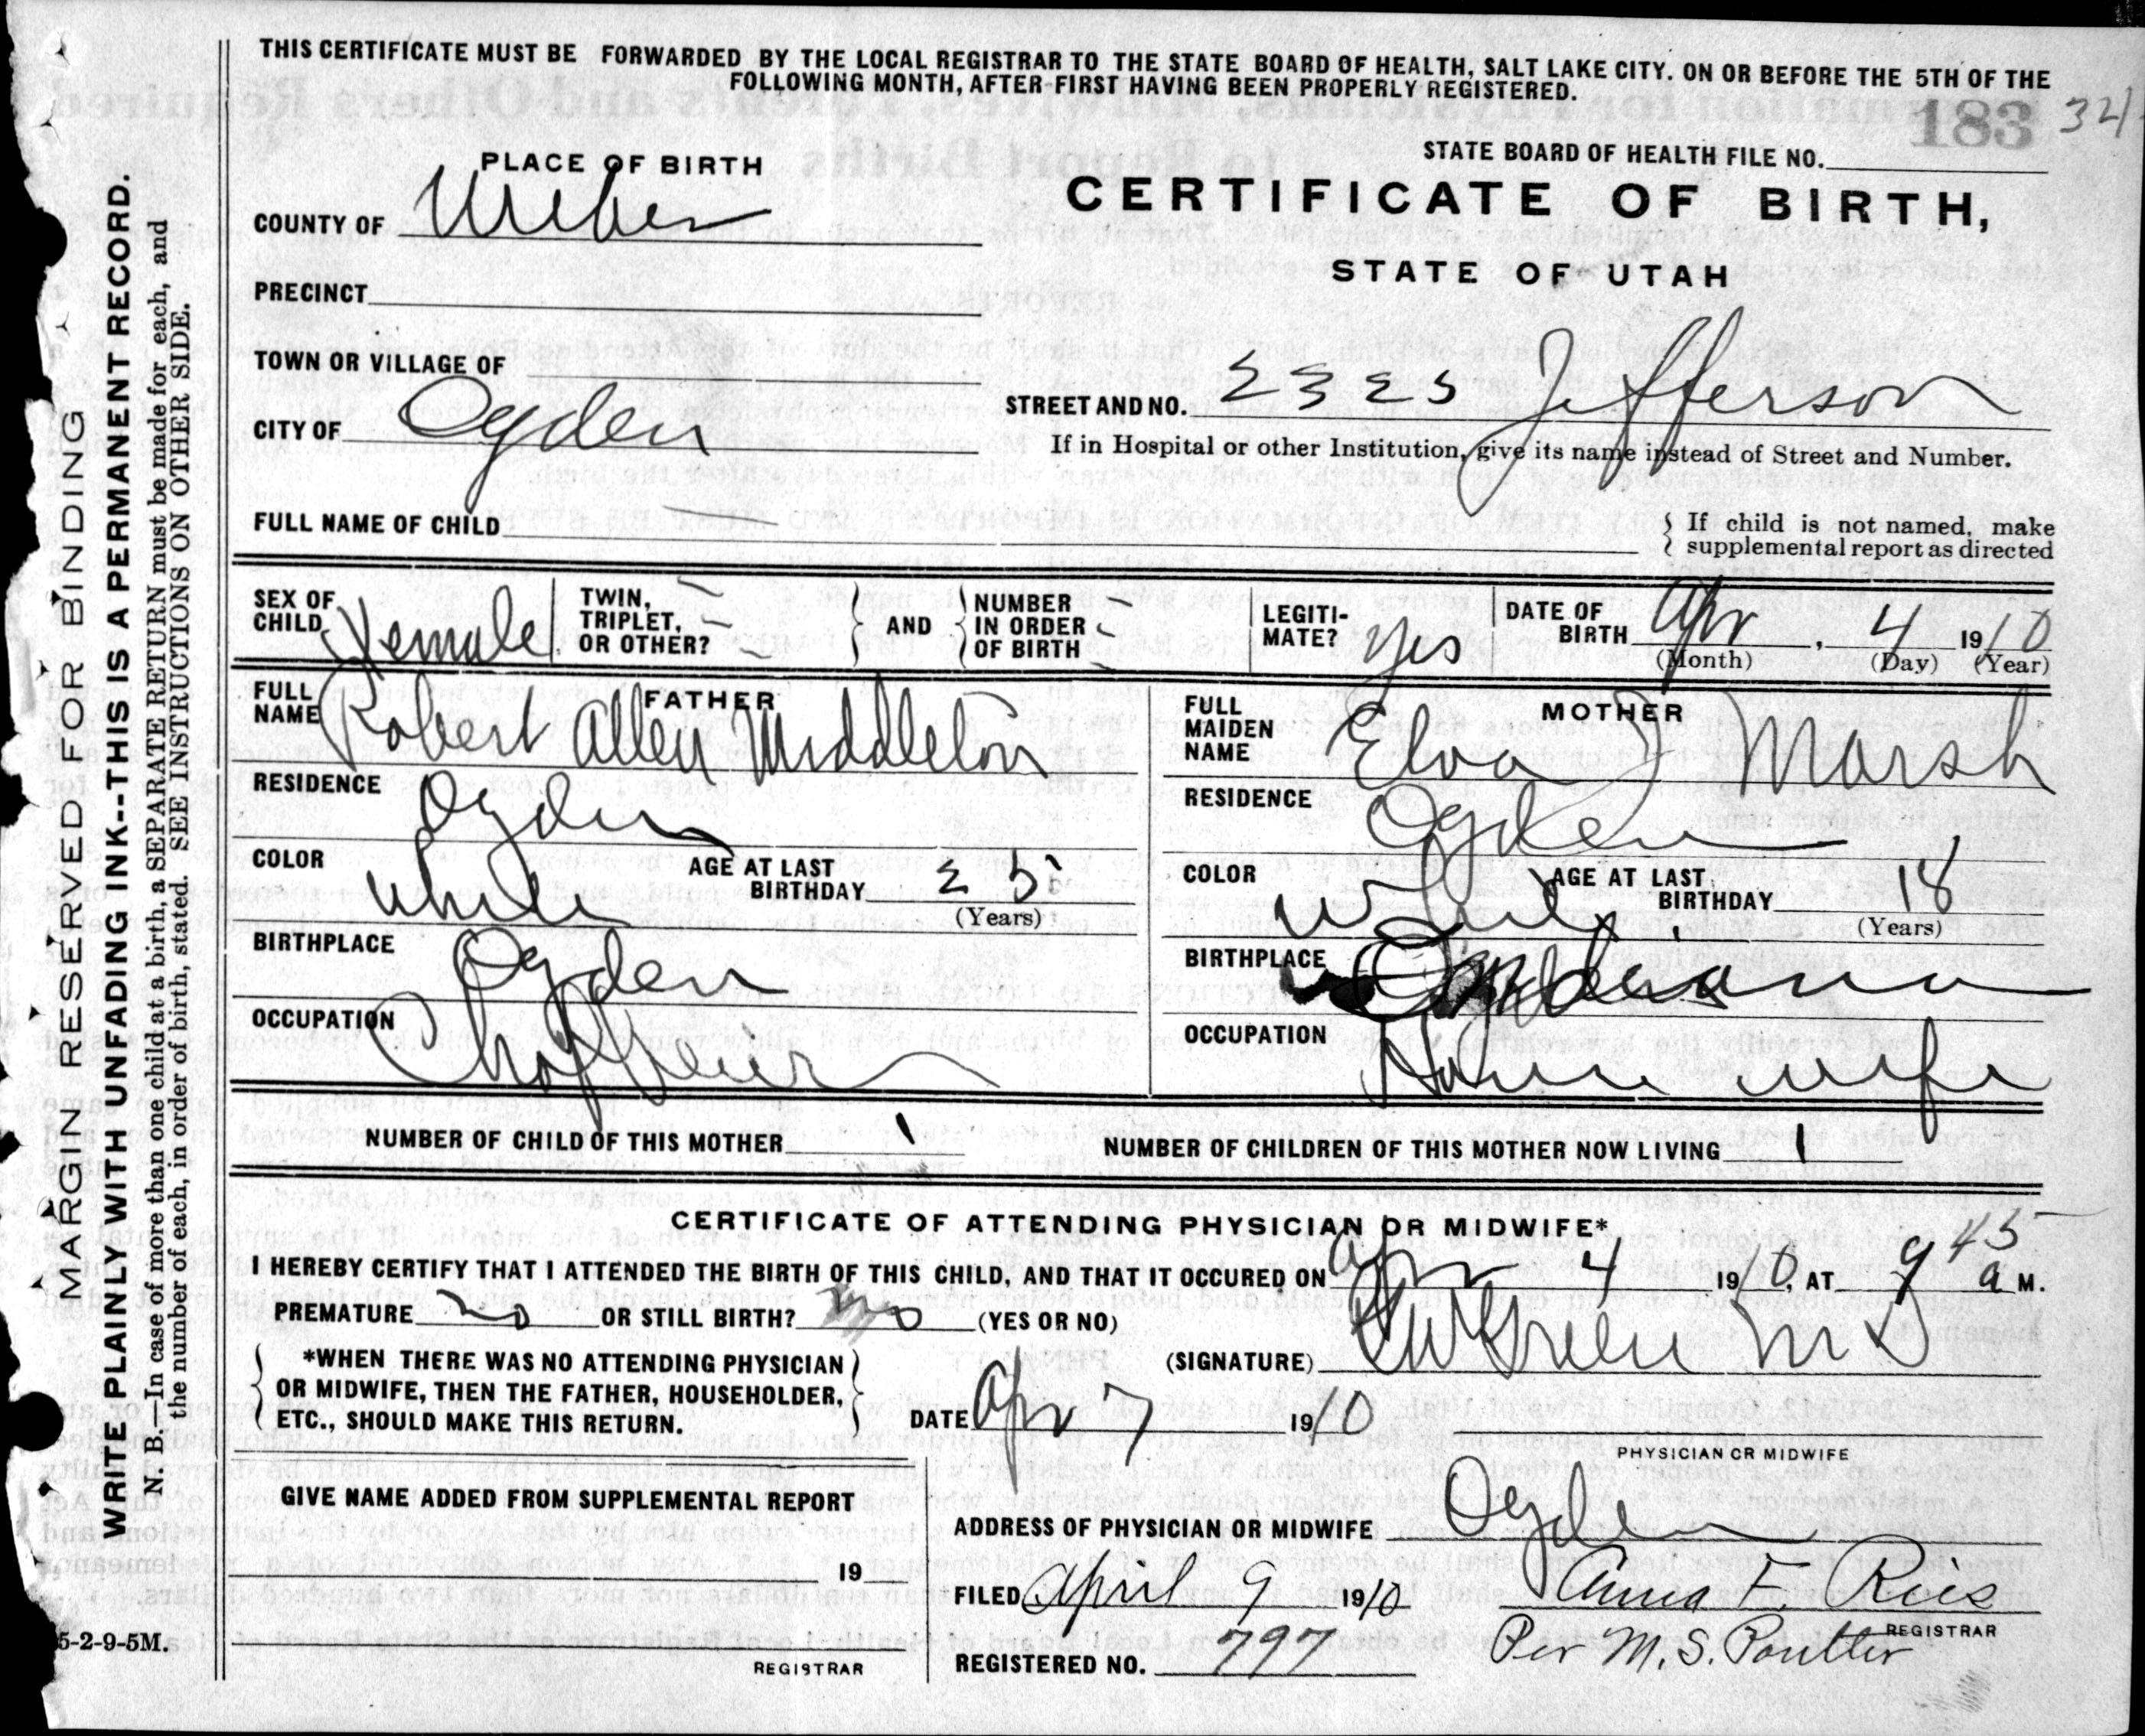 THIS CERTIFICATE MUST BE FORWARDED BY THE LOCAL REGISTRAR TO THE STATE BOARD OF HEALTH, SALT LAKE CITY. ON OR BEFORE THE 5TH OF THE
FOLLOWING MONTH, AFTER FIRST HAVING BEEN PROPERLY REGISTERED.
183
STATE BOARD OF HEALTH FILE NO.
PLACE OF BIRTH
CERTIFICATE OF BIRTH,
STATE OF UTAH
COUNTY OF Weber
PRECINCT
TOWN OR VILLAGE OF
STREET AND NO. 2323 Jefferson
CITY OF Ogden
If in Hospital or other Institution, give its name instead of Street and Number.
FULL NAME OF CHILD
If child is not named, make
supplemental report as directed
SEX OF CHILD Female
TWIN, TRIPLET, OR OTHER?
AND
NUMBER IN ORDER OF BIRTH
LEGITIMATE? Yes
DATE OF BIRTH Apr, 4 1910
(Month) (Day) (Year)
FATHER
FULL NAME Robert Allen Middleton
RESIDENCE Ogden
COLOR White
AGE AT LAST BIRTHDAY 25
(Years)
BIRTHPLACE Ogden
OCCUPATION Choffeur
MOTHER
FULL MAIDEN NAME Elva J Marsh
RESIDENCE Ogden
COLOR White
AGE AT LAST BIRTHDAY 18
(Years)
BIRTHPLACE
OCCUPATION House wife
NUMBER OF CHILD OF THIS MOTHER 1
NUMBER OF CHILDREN OF THIS MOTHER NOW LIVING 1
CERTIFICATE OF ATTENDING PHYSICIAN OR MIDWIFE*
I HEREBY CERTIFY THAT I ATTENDED THE BIRTH OF THIS CHILD, AND THAT IT OCCURED ON Apr 4 1910, AT 9 45 a M.
PREMATURE no OR STILL BIRTH? no (YES OR NO)
*WHEN THERE WAS NO ATTENDING PHYSICIAN
OR MIDWIFE, THEN THE FATHER, HOUSEHOLDER,
ETC., SHOULD MAKE THIS RETURN.
(SIGNATURE) M D
DATE Apr 7 1910
PHYSICIAN OR MIDWIFE
GIVE NAME ADDED FROM SUPPLEMENTAL REPORT
19
REGISTRAR
ADDRESS OF PHYSICIAN OR MIDWIFE Ogden
FILED April 9 1910 Anna F. Ries
REGISTRAR
Per M. S. Poulter
REGISTERED NO. 797
MARGIN RESERVED FOR BINDING
WRITE PLAINLY WITH UNFADING INK--THIS IS A PERMANENT RECORD.
N. B.—In case of more than one child at a birth, a SEPARATE RETURN must be made for each, and
the number of each, in order of birth, stated. SEE INSTRUCTIONS ON OTHER SIDE.
5-2-9-5M.